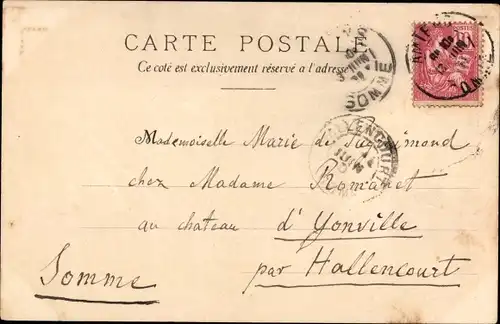 CARTE POSTALE
Ce coté est exclusivement réservé à l'adresse
AMIENS
SOMME
HALLENCOURT
10
Mademoiselle Marie de
chez Madame Romanet
au chateau d'Yonville
Somme par Hallencourt